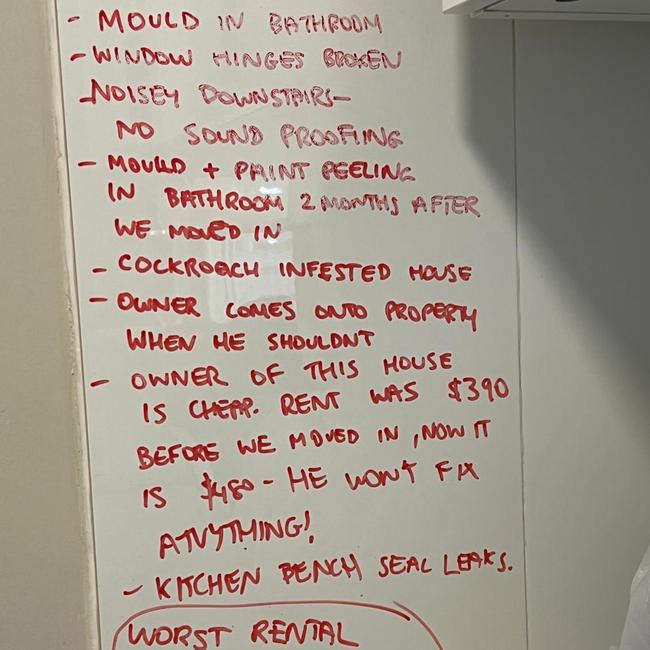 - MOULD IN BATHROOM
- WINDOW HINGES BROKEN
- NOISEY DOWNSTAIRS -
NO SOUND PROOFING
- MOULD + PAINT PEELING
IN BATHROOM 2 MONTHS AFTER
WE MOVED IN
- COCKROACH INFESTED HOUSE
- OWNER COMES ONTO PROPERTY
WHEN HE SHOULDNT
- OWNER OF THIS HOUSE
IS CHEAP. RENT WAS $390
BEFORE WE MOVED IN, NOW IT
IS $480 - HE WONT FIX
ANYTHING!
- KITCHEN BENCH SEAL LEAKS.
WORST RENTAL